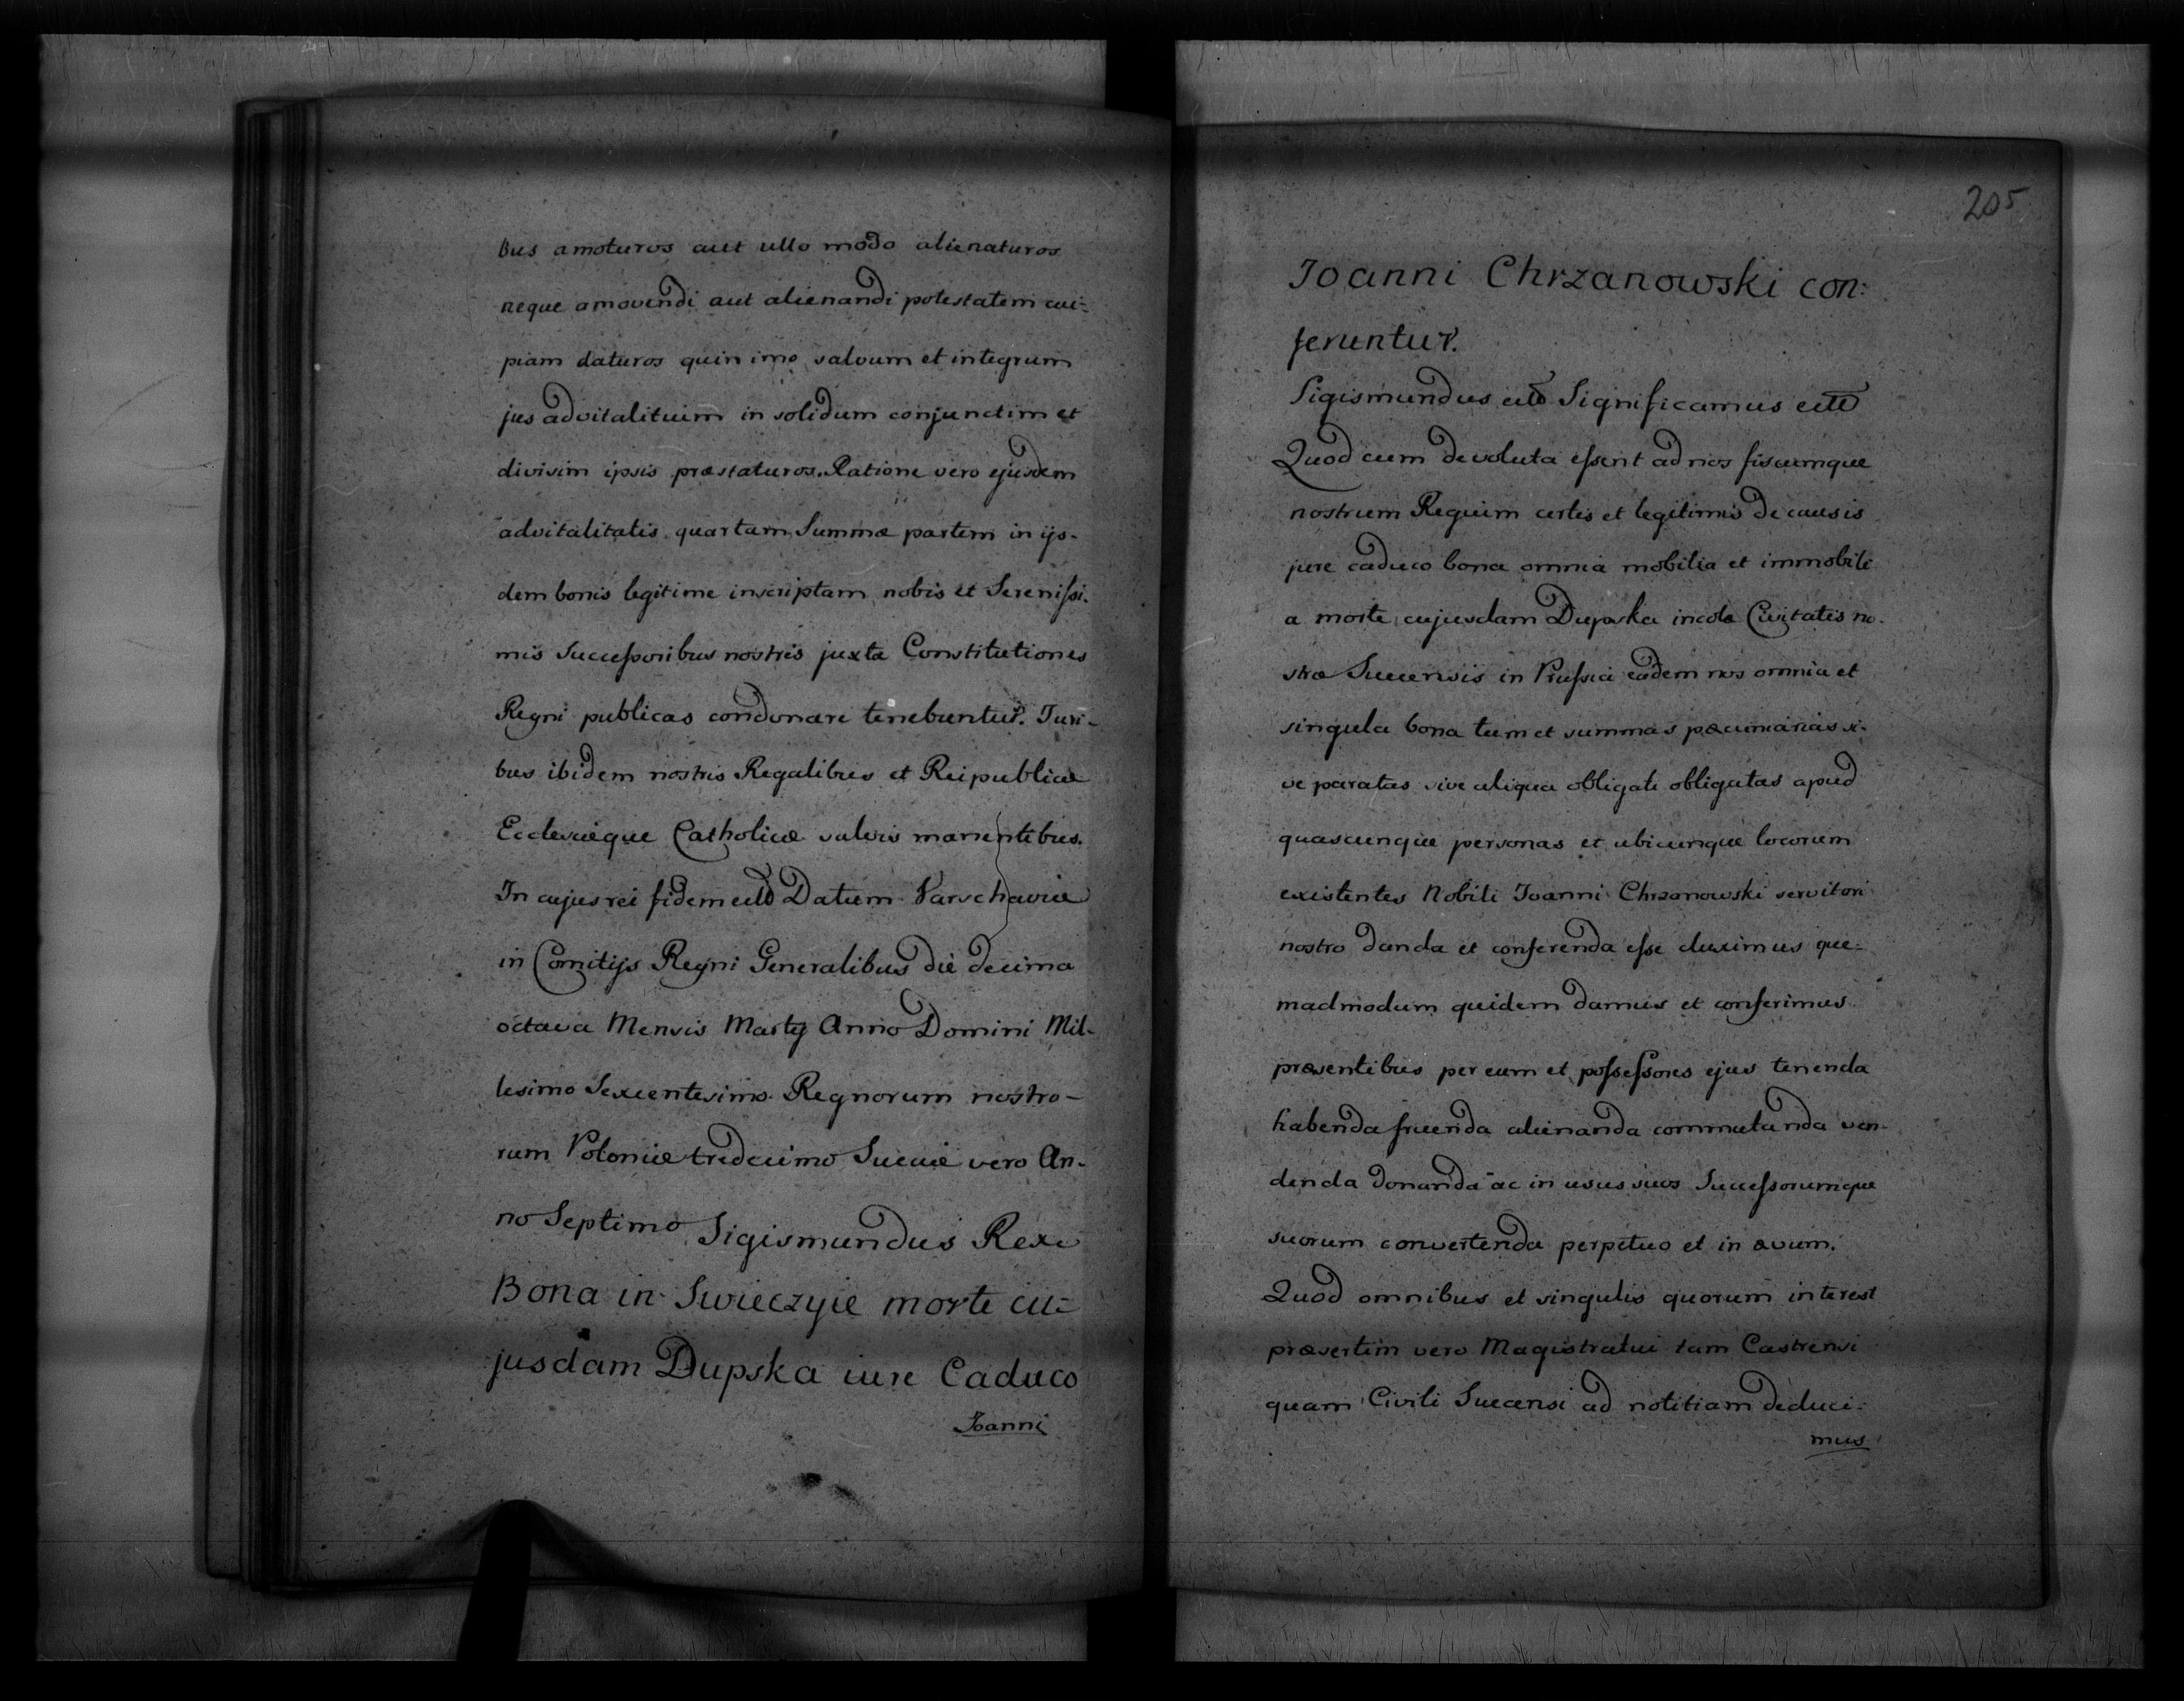 bus amoturos aut ullo modo alienaturos
neque amovendi aut alienandi potestatem cui-
piam daturos quin imo salvum et integrum
jus advitalituim in solidum conjunctim et
divisim ipsis præstaturos. Ratione vero ejusdem
advitalitatis quartam Summæ partem in ijs-
dem bonis legitime inscriptam nobis et Serenissi-
mis Successoribus nostris juxta Constitutiones
Regni publicas condonare tenebuntur. Juri-
bus ibidem nostris Regalibus et Reipublicæ
Ecclesiæque Catholicæ salvis manentibus.
In cujus rei fidem Datum Varschaviæ
in Comitijs Regni Generalibus die decima
octava Mensis Martij Anno Domini Mil-
lesimo Sexcentesimo. Regnorum nostro-
rum Poloniæ tredecimo Sueciæ vero An-
no Septimo Sigismundus Rex
Bona in Swieczyie morte cu-
jusdam Dupska iure Caduco
Joanni
205
Joanni Chrzanowski con-
feruntur.
Sigismundus Significamus
Quod cum devoluta essent ad nos fiscumque
nostrum Regium certis et legitimis de causis
jure caduco bona omnia mobilia et immobili
a morte cujusdam Dupska incolæ Civitatis no-
stræ Suecensis in Prussia eadem nos omnia et
singula bona tum et summas pæcuniarias si-
ve paratas sive aliqua obligate obligatas apud
quascunque personas et ubicunque locorum
existentes Nobili Joanni Chrzanowski servitori
nostro danda et conferenda esse duximus que-
madmodum quidem damus et conferimus
præsentibus per eum et possessores ejus tenenda
habenda fruenda alienanda commutanda ven-
denda donanda ac in usus suos Successorumque
suorum convertenda perpetuo et in ævum.
Quod omnibus et singulis quorum interest
præsertim vero Magistratui tam Castrensi
quam Civili Suecensi ad notitiam deduci-
mus